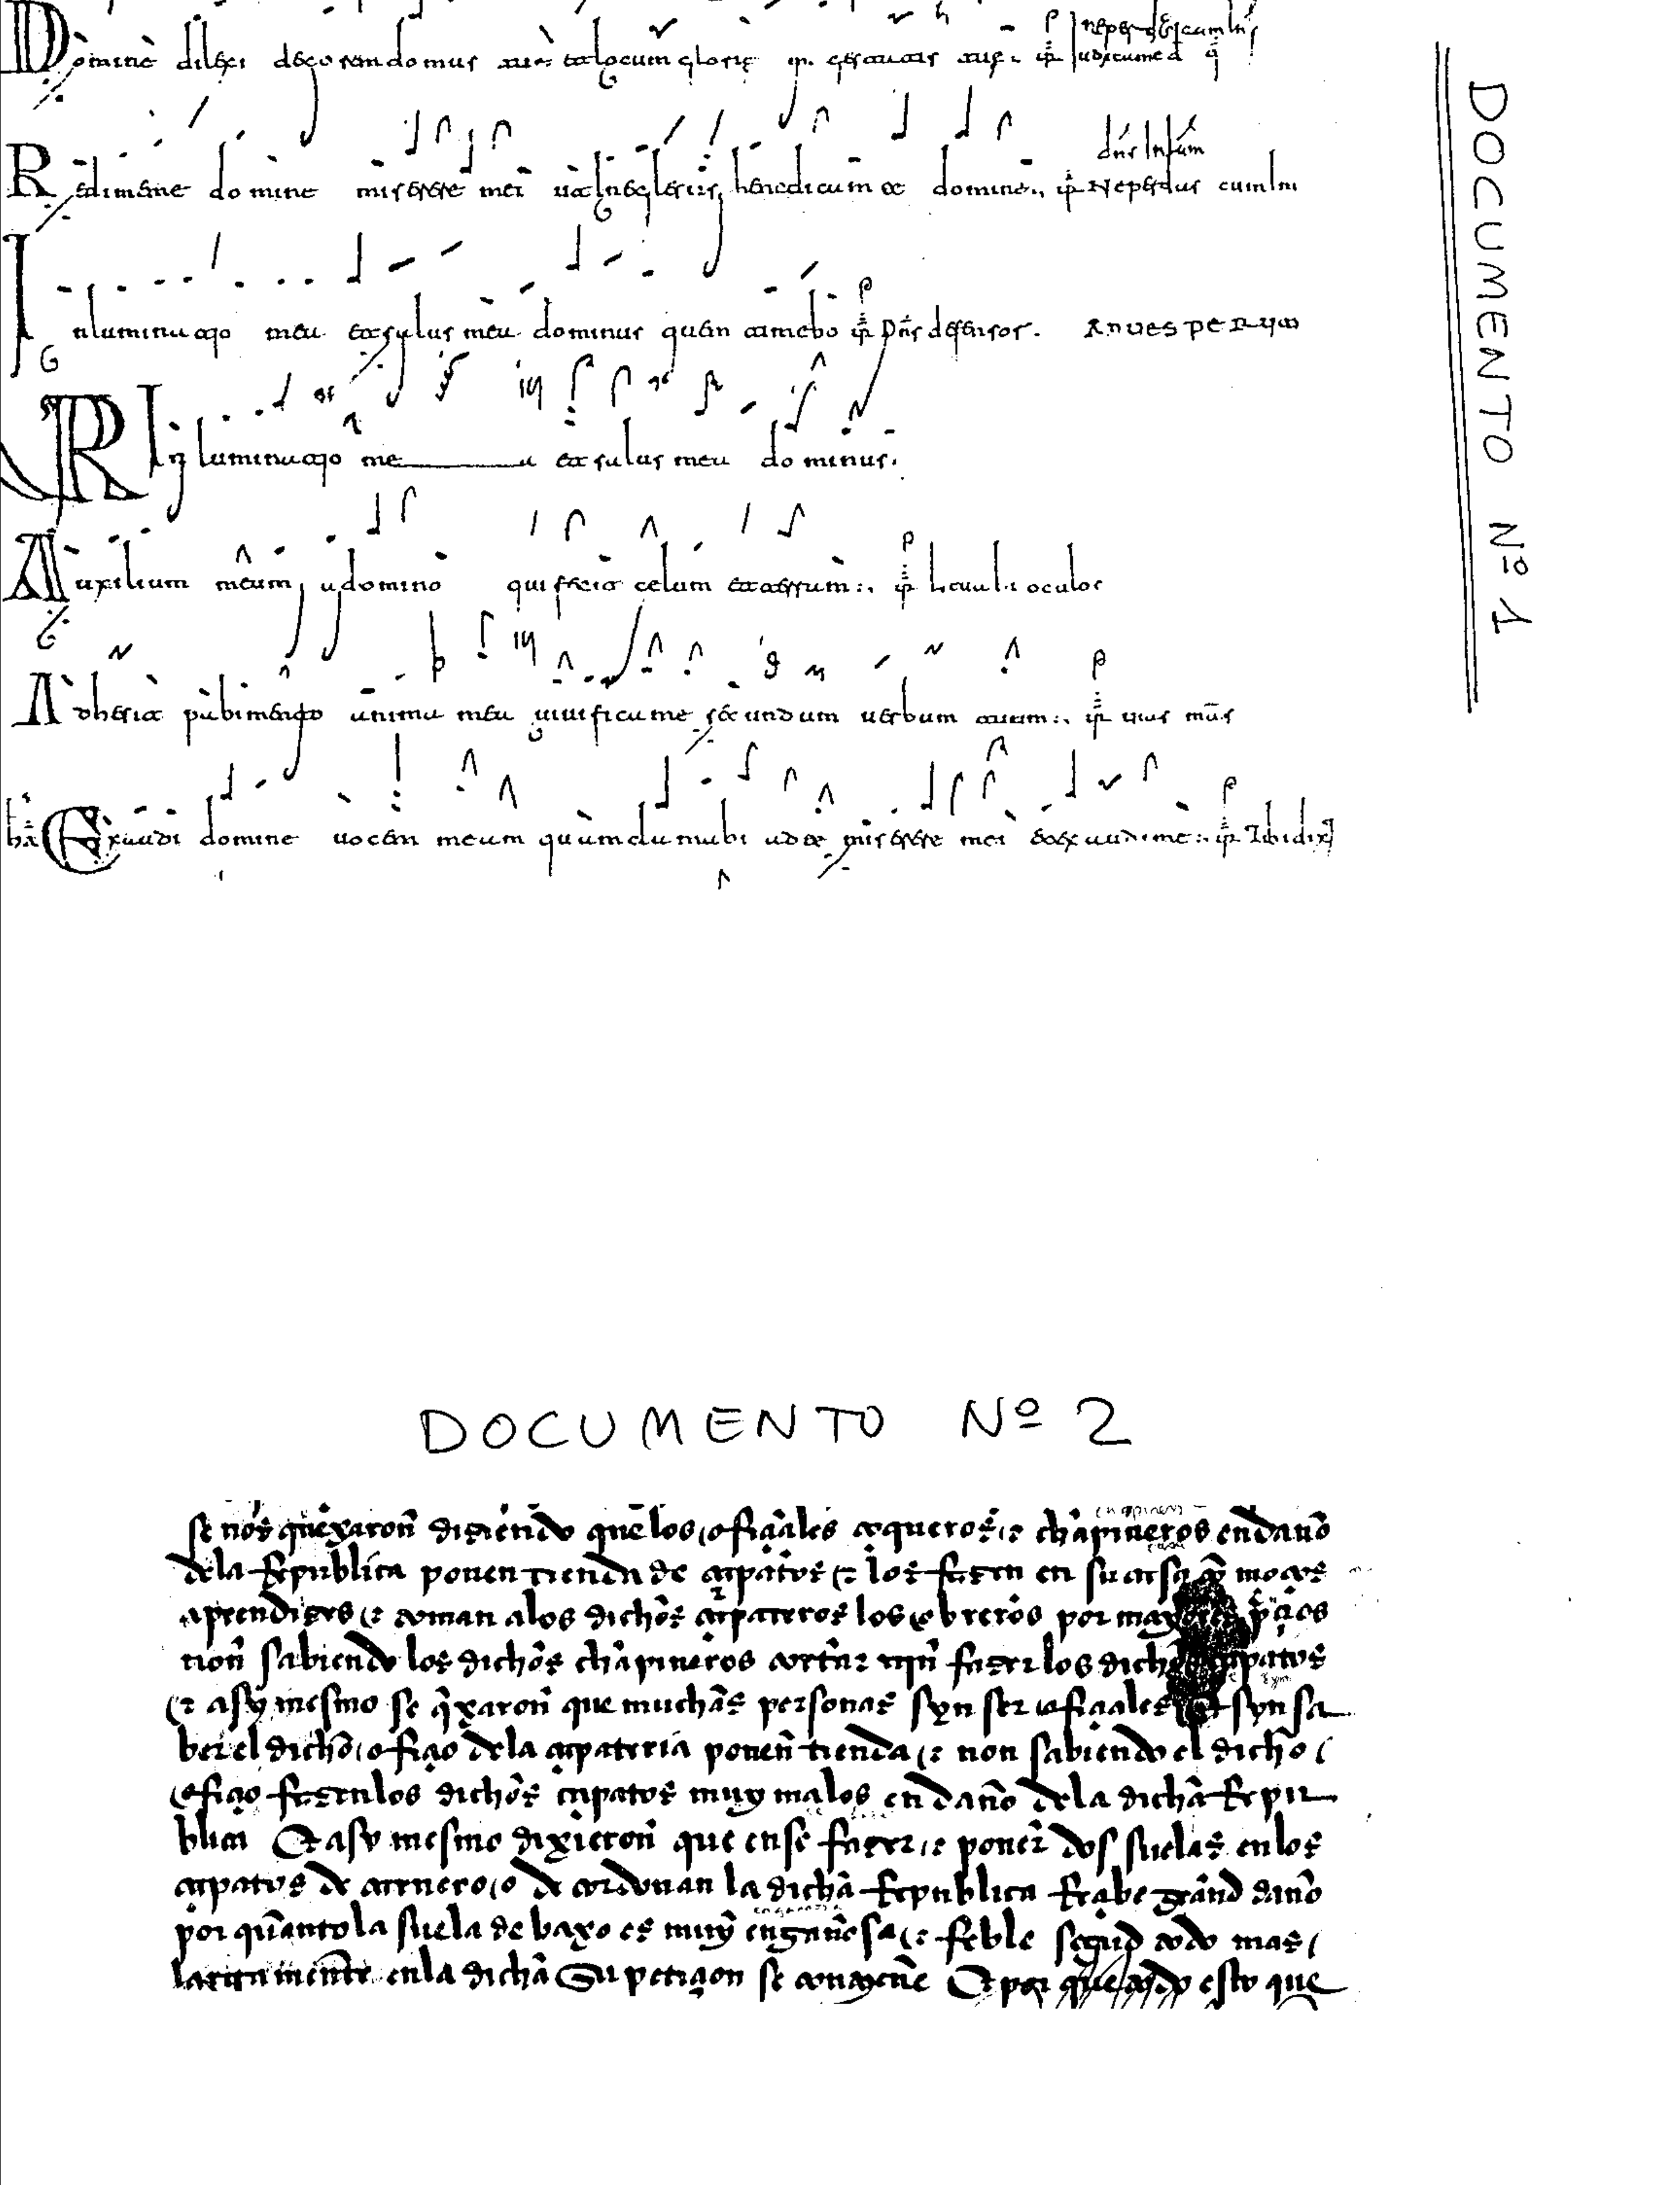 DOCUMENTO Nº 1
Domine dilexi decorem domus tue et locum glorie
Redimeme domine miserere mei benedicam te domine
Inluminatio mea et salus mea dominus quem timebo dns defensor. AD VESPERUM
Inluminatio mea et salus mea dominus
Auxilium meum a domino qui fecit celum et terram oculos
Adhesit pabimento anima mea vivifica me secundum verbum tuum
Exaudi domine vocem meam qua clamabi ad te miserere mei et exaudi me Tibi dix
DOCUMENTO Nº 2
se nos quexaron diziendo que los ofiçiales çoqueros e chapineros en daño
de la Republica ponen tienda de çapatos e los fazen en su casa moços
aprendizes e toman a los dichos çapateros los obreros por preçios
non sabiendo los dichos chapineros cortar nin fazer los dichos çapatos
e asy mesmo se qxaron que muchas personas syn ser ofiçiales syn sa
ber el dicho ofiçio de la çapateria ponen tienda e non sabiendo el dicho
ofiçio fazen los dichos çapatos muy malos en daño de la dicha Repu
blica Et asy mesmo dixieron que en se fazer e poner dos suelas en los
çapatos de carnero o de cordouan la dicha Republica Reçabe grand daño
por quanto la suela de baxo es muy engañosa e feble segund todo mas
larga mente en la dicha Su petiçion se contyene Et por que todo esto que